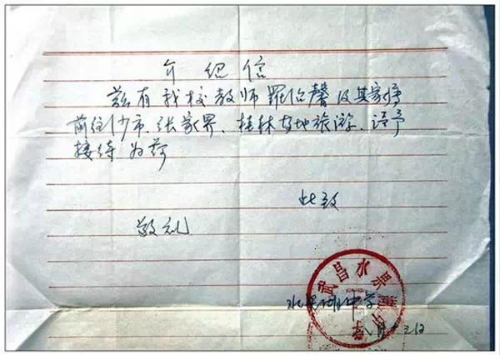 介绍信
兹有我校教师罗怡馨及其家属
前往沙市、张家界、桂林等地旅游，请予
接待为荷
此致
敬礼
水果湖中学
武昌水果湖中学